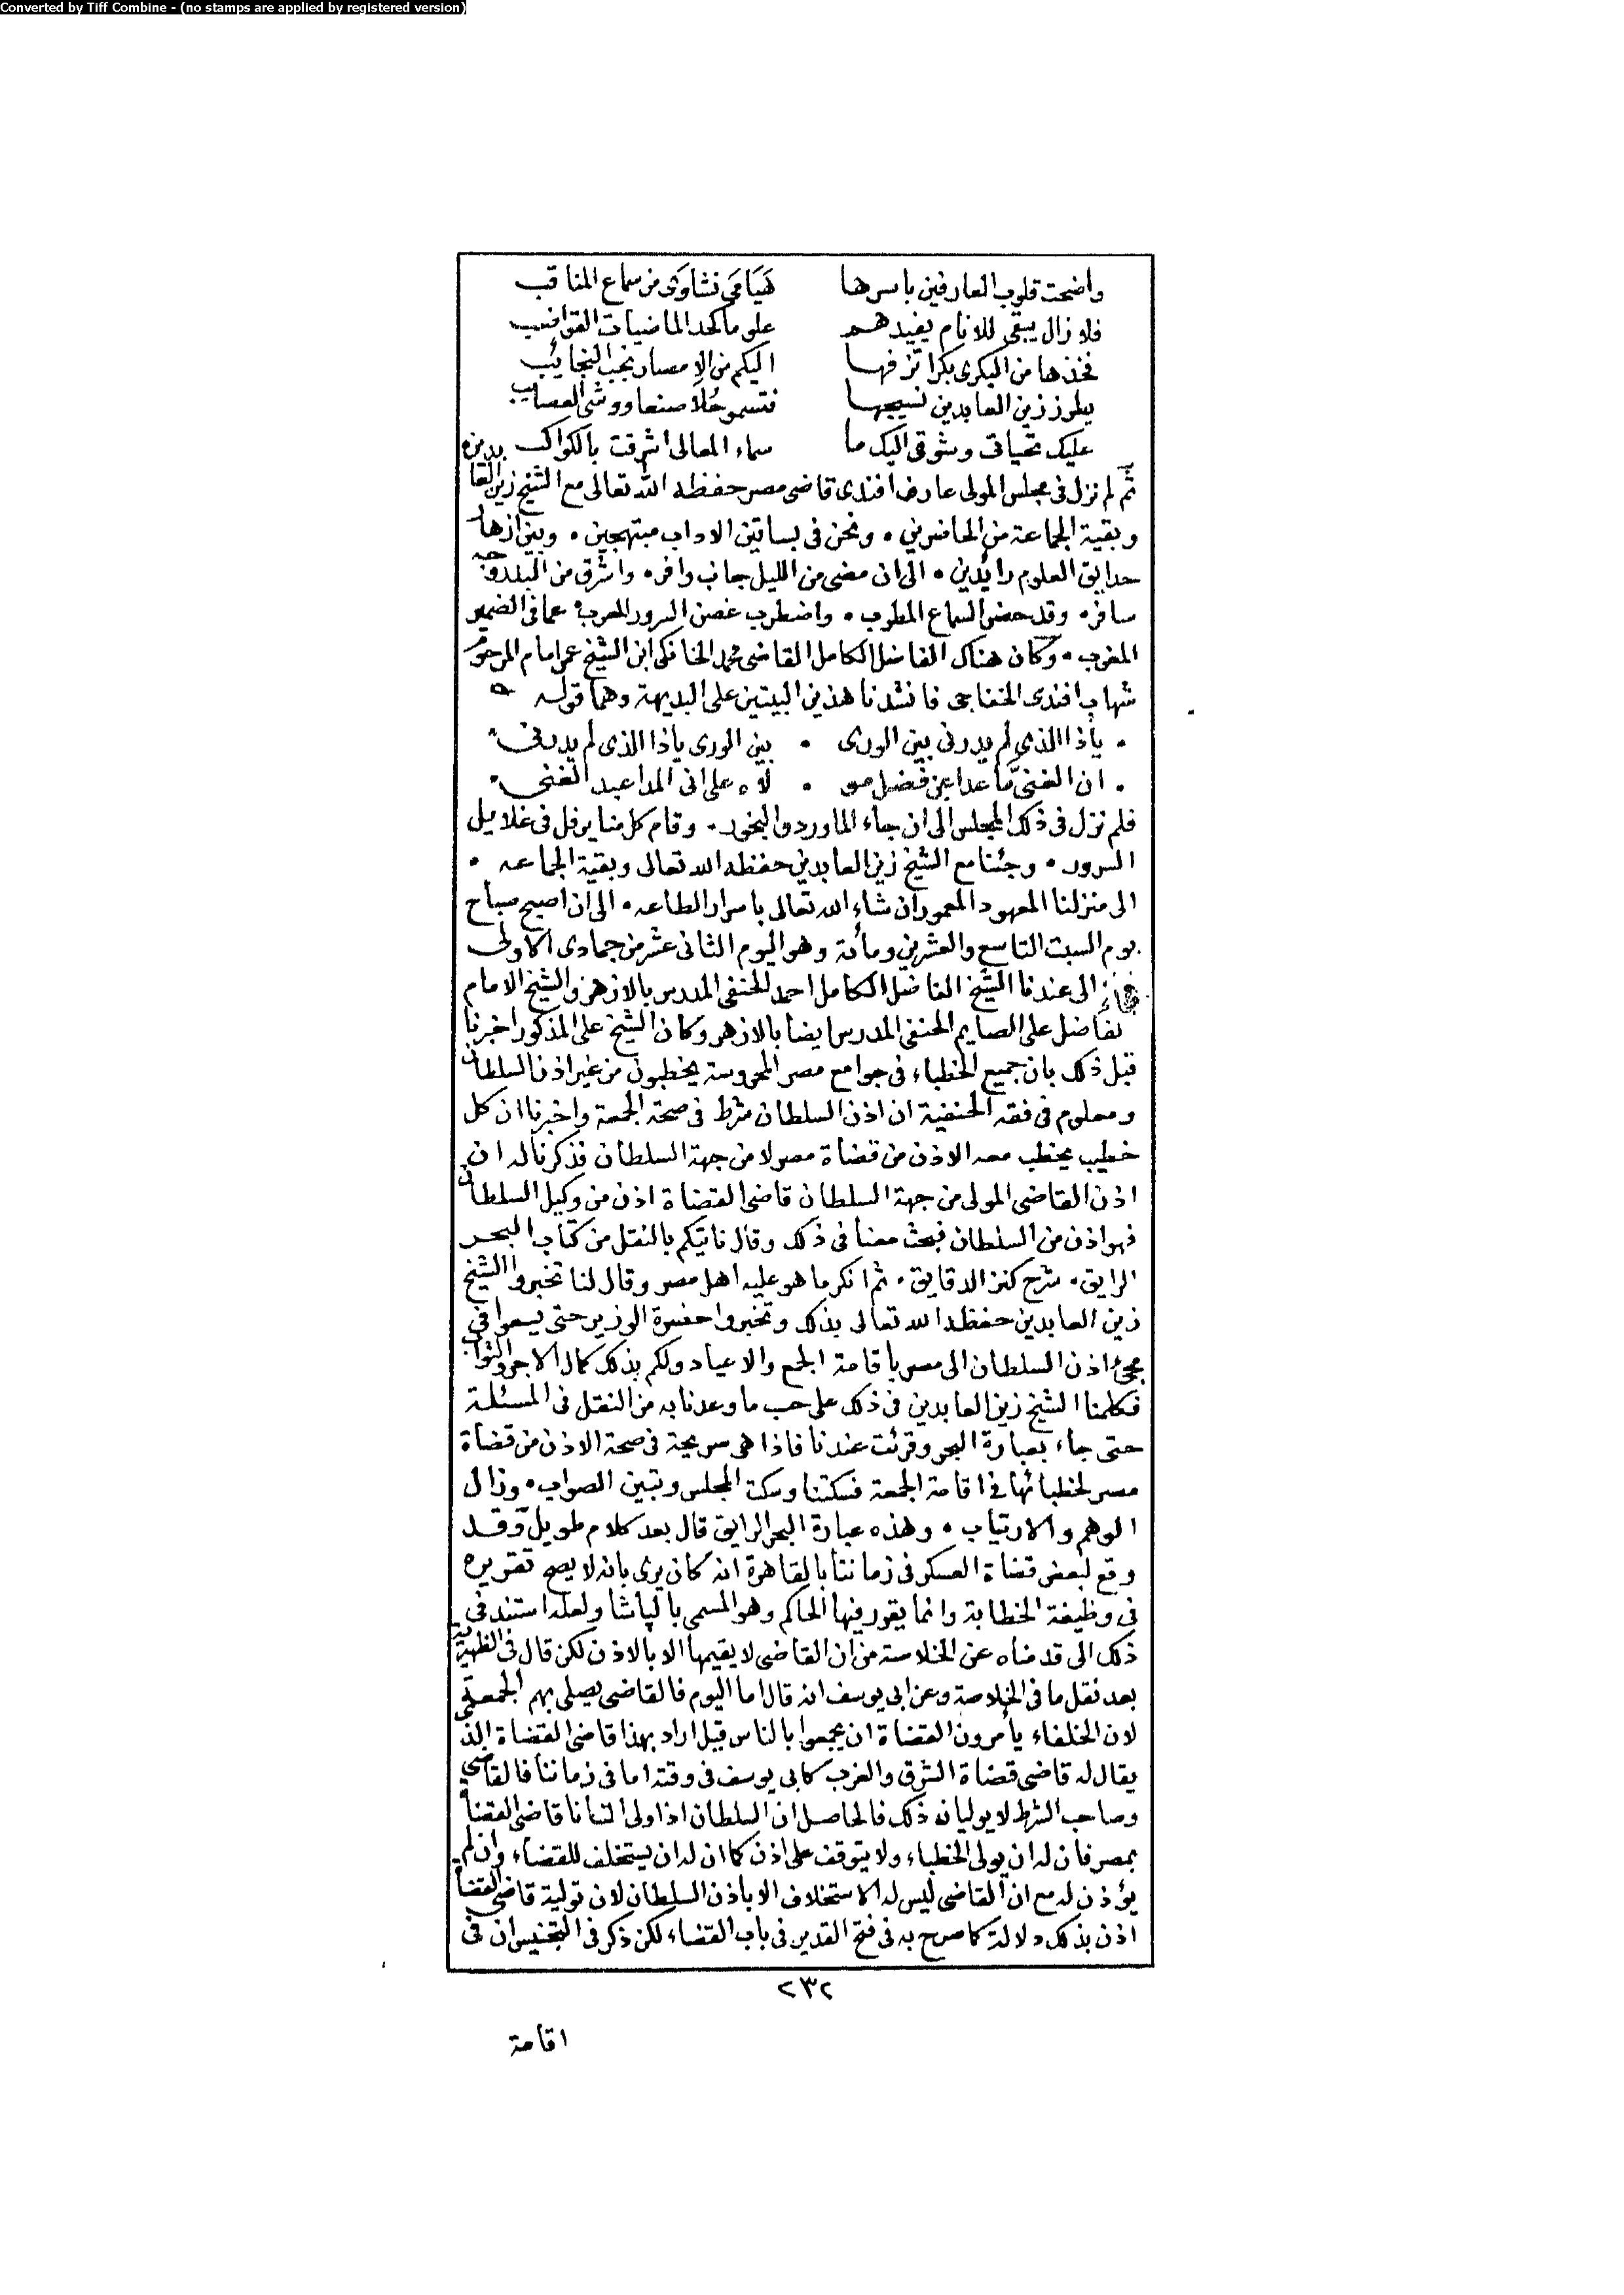 Converted by Tiff Combine - (no stamps are applied by registered version)
واضحت قلوب العارفين باسرها هيامى نشاوى من سماع المناقب
فلا زال يبقى للانام يفيدهم علوما كحد الماضيات القواضب
فخذها من البكرى بكرا تزفها اليكم من الامصار نجب النجائب
يطرز زين العابدين نسيجها فتسمو حلا صنعا ووشى العصايب
عليك تحياتى وشوقى اليك ما سماء المعالى اشرقت بالكواكب
ثم لم نزل فى مجلس المولى عارف افندى قاضى مصر حفظه الله تعالى مع الشيخ زين العابدين
وبقية الجماعة من الحاضرين • ونحن فى بساتين الاداب مبتهجين • وبين ازهار
حدايق العلوم رائدين • الى ان مضى من الليل جانب وافر • واشرق من البلد وجه
سافر • وقد حضر السماع المطرب • واضطرب غصن السرور المعرب عما فى الضمير
المغرب • وكان هناك الفاضل الكامل القاضى محمد الخانكى ابن الشيخ عمر امام المرحوم
شهاب افندى الخفاجى فانشدنا هذين البيتين على البديهة وهما قوله
• ياذا الذى لم يدر فى بين الورى • بين الورى ياذا الذى لم يدرنى •
• ان الغنى ما عدا عن فضل مو • لاه على انى المدا عبد الغنى •
فلم نزل فى ذلك المجلس الى ان جاء الماورد والبخور • وقام كل منا يرفل فى غلايل
السرور • وجئنا مع الشيخ زين العابدين حفظه الله تعالى وبقية الجماعه •
الى منزلنا المعهود المعمور ان شاء الله تعالى باسرار الطاعه • الى ان اصبح صباح
يوم السبت التاسع والعشرين ومأئة وهو اليوم الثانى عشر من جمادى الاولى
فجاء الى عندنا الشيخ الفاضل الكامل احمد الحنفى المدرس بالازهر والشيخ الامام
الفاضل على الصايم الحنفى المدرس ايضا بالازهر وكان الشيخ على المذكور اخبرنا
قبل ذلك بان جميع الخطباء فى جوامع مصر المحروسة يخطبون من غير اذن السلطان
ومعلوم فى فقه الحنفية ان اذن السلطان شرط فى صحة الجمعة واخبرنا ان كل
خطيب يخطب معه الاذن من قضاة مصر لا من جهة السلطان فذكرنا له ان
اذن القاضى المولى من جهة السلطان قاضى القضاة اذن من وكيل السلطان
فهو اذن من السلطان فبحث معنا فى ذلك وقال ناتيكم بالنقل من كتاب البحر
الرايق • شرح كنز الدقايق • ثم انكر ما هو عليه اهل مصر وقال لنا تخبروا الشيخ
زين العابدين حفظه الله تعالى بذلك وتخبروا حضرة الوزير حتى يسعوا فى
مجئ اذن السلطان الى مصر باقامة الجمع والاعياد ولكم بذلك كمال الاجر والثواب
فكلمنا الشيخ زين العابدين فى ذلك على حسب ما وعدنا به من النقل فى المسئلة
حتى جاء بعبارة البحر وقرئت عندنا فاذا هى صريحة فى صحة الاذن من قضاة
مصر لخطبائها فى اقامة الجمعة فسكتنا وسكت المجلس وتبين الصواب • وزال
الوهم والارتياب • وهذه عبارة البحر الرايق قال بعد كلام طويل وقد
وقع لبعض قضاة العسكر فى زماننا بالقاهرة انه كان يرى بانه لا يصح تقريره
فى وظيفة الخطابة وانما يقرر فيها الحاكم وهو المسمى بالباشا ولعله استند فى
ذلك الى قدمناه عن الخلاصة من ان القاضى لا يقيمها الا بالاذن لكن قال فى الظهيرية
بعد نقل ما فى الخلاصة وعن ابى يوسف انه قال اما اليوم فالقاضى يصلى بهم الجمعة
لان الخلفاء يأمرون القضاة ان يجمعوا بالناس قيل اراد بهذا قاضى القضاة الذى
يقال له قاضى قضاة الشرق والغرب كابى يوسف فى وقته اما فى زماننا فالقاضى
وصاحب الشرط لا يوليان ذلك فالحاصل ان السلطان اذا ولى انسانا قاضى القضاة
بمصر فان له ان يولى الخطباء ولا يتوقف على اذن كما ان له ان يستخلف للقضاء وان لم
يؤذن له مع ان القاضى ليس له الاستخلاف الا باذن السلطان لان تولية قاضى القضاة
اذن بذلك دلالة كما صرح به فى فتح القدير فى باب القضاء لكن ذكر فى التجنيس ان فى
٢٣٢
اقامة